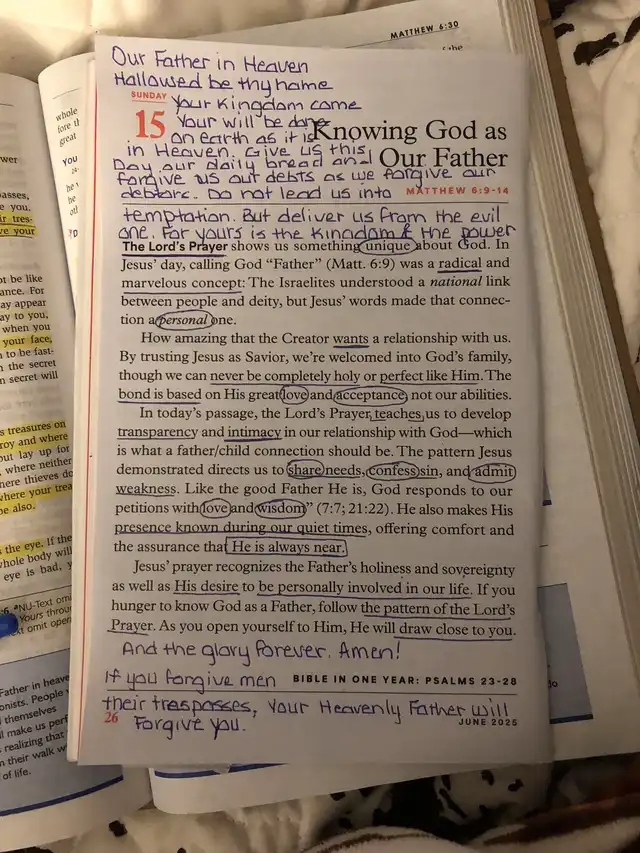 MATTHEW 6:30
Our Father in Heaven
Hallowed be thy name
SUNDAY
Your Kingdom come
15
Your will be done
on earth as it is
Knowing God as
in Heaven. Give us this
Day our daily bread and
Our Father
forgive us out debts as we forgive our
debtors. Do not lead us into
MATTHEW 6:9-14
temptation. But deliver us from the evil
one. For yours is the Kingdom & the power
The Lord's Prayer shows us something unique about God. In
Jesus' day, calling God "Father" (Matt. 6:9) was a radical and
marvelous concept: The Israelites understood a national link
between people and deity, but Jesus' words made that connec-
tion a personal one.
How amazing that the Creator wants a relationship with us.
By trusting Jesus as Savior, we're welcomed into God's family,
though we can never be completely holy or perfect like Him. The
bond is based on His great love and acceptance, not our abilities.
In today's passage, the Lord's Prayer teaches us to develop
transparency and intimacy in our relationship with God—which
is what a father/child connection should be. The pattern Jesus
demonstrated directs us to share needs, confess sin, and admit
weakness. Like the good Father He is, God responds to our
petitions with love and wisdom" (7:7; 21:22). He also makes His
presence known during our quiet times, offering comfort and
the assurance that He is always near.
Jesus' prayer recognizes the Father's holiness and sovereignty
as well as His desire to be personally involved in our life. If you
hunger to know God as a Father, follow the pattern of the Lord's
Prayer. As you open yourself to Him, He will draw close to you.
And the glory forever. Amen!
If you forgive men
BIBLE IN ONE YEAR: PSALMS 23-28
their trespasses, your Heavenly Father will
26
Forgive you.
JUNE 2025
whole
fore th
great
YOU
wer
asses,
e you.
ir tres-
ve your
ot be like
ance. For
ay appear
ay to you,
when you
your face,
n to be fast-
n the secret
n secret will
s treasures on
roy and where
out lay up for
, where neither
here thieves do
where your trea
be also.
s the eye. If the
whole body will
eye is bad, y
NU-Text omi
Yours throu
xt omit open
Father in heave
onists. People
d themselves
ll make us perf
s realizing that
n their walk w
of life.
do